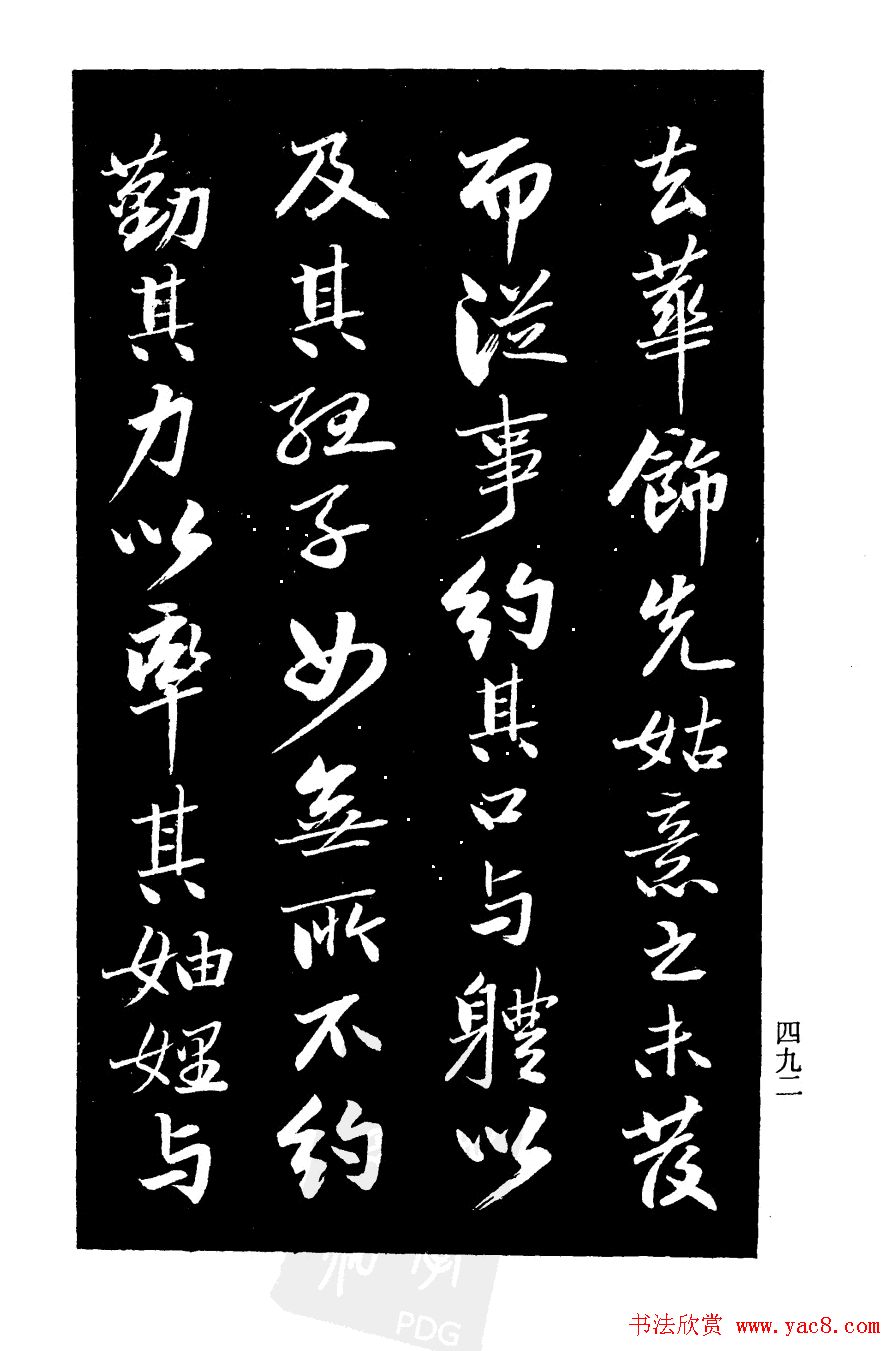 去華飾先姑意之未發
而從事約其口与體以
及其經子女無所不約
勤其力以率其妯娌与
四九二
PDG
书法欣赏 www.yac8.com